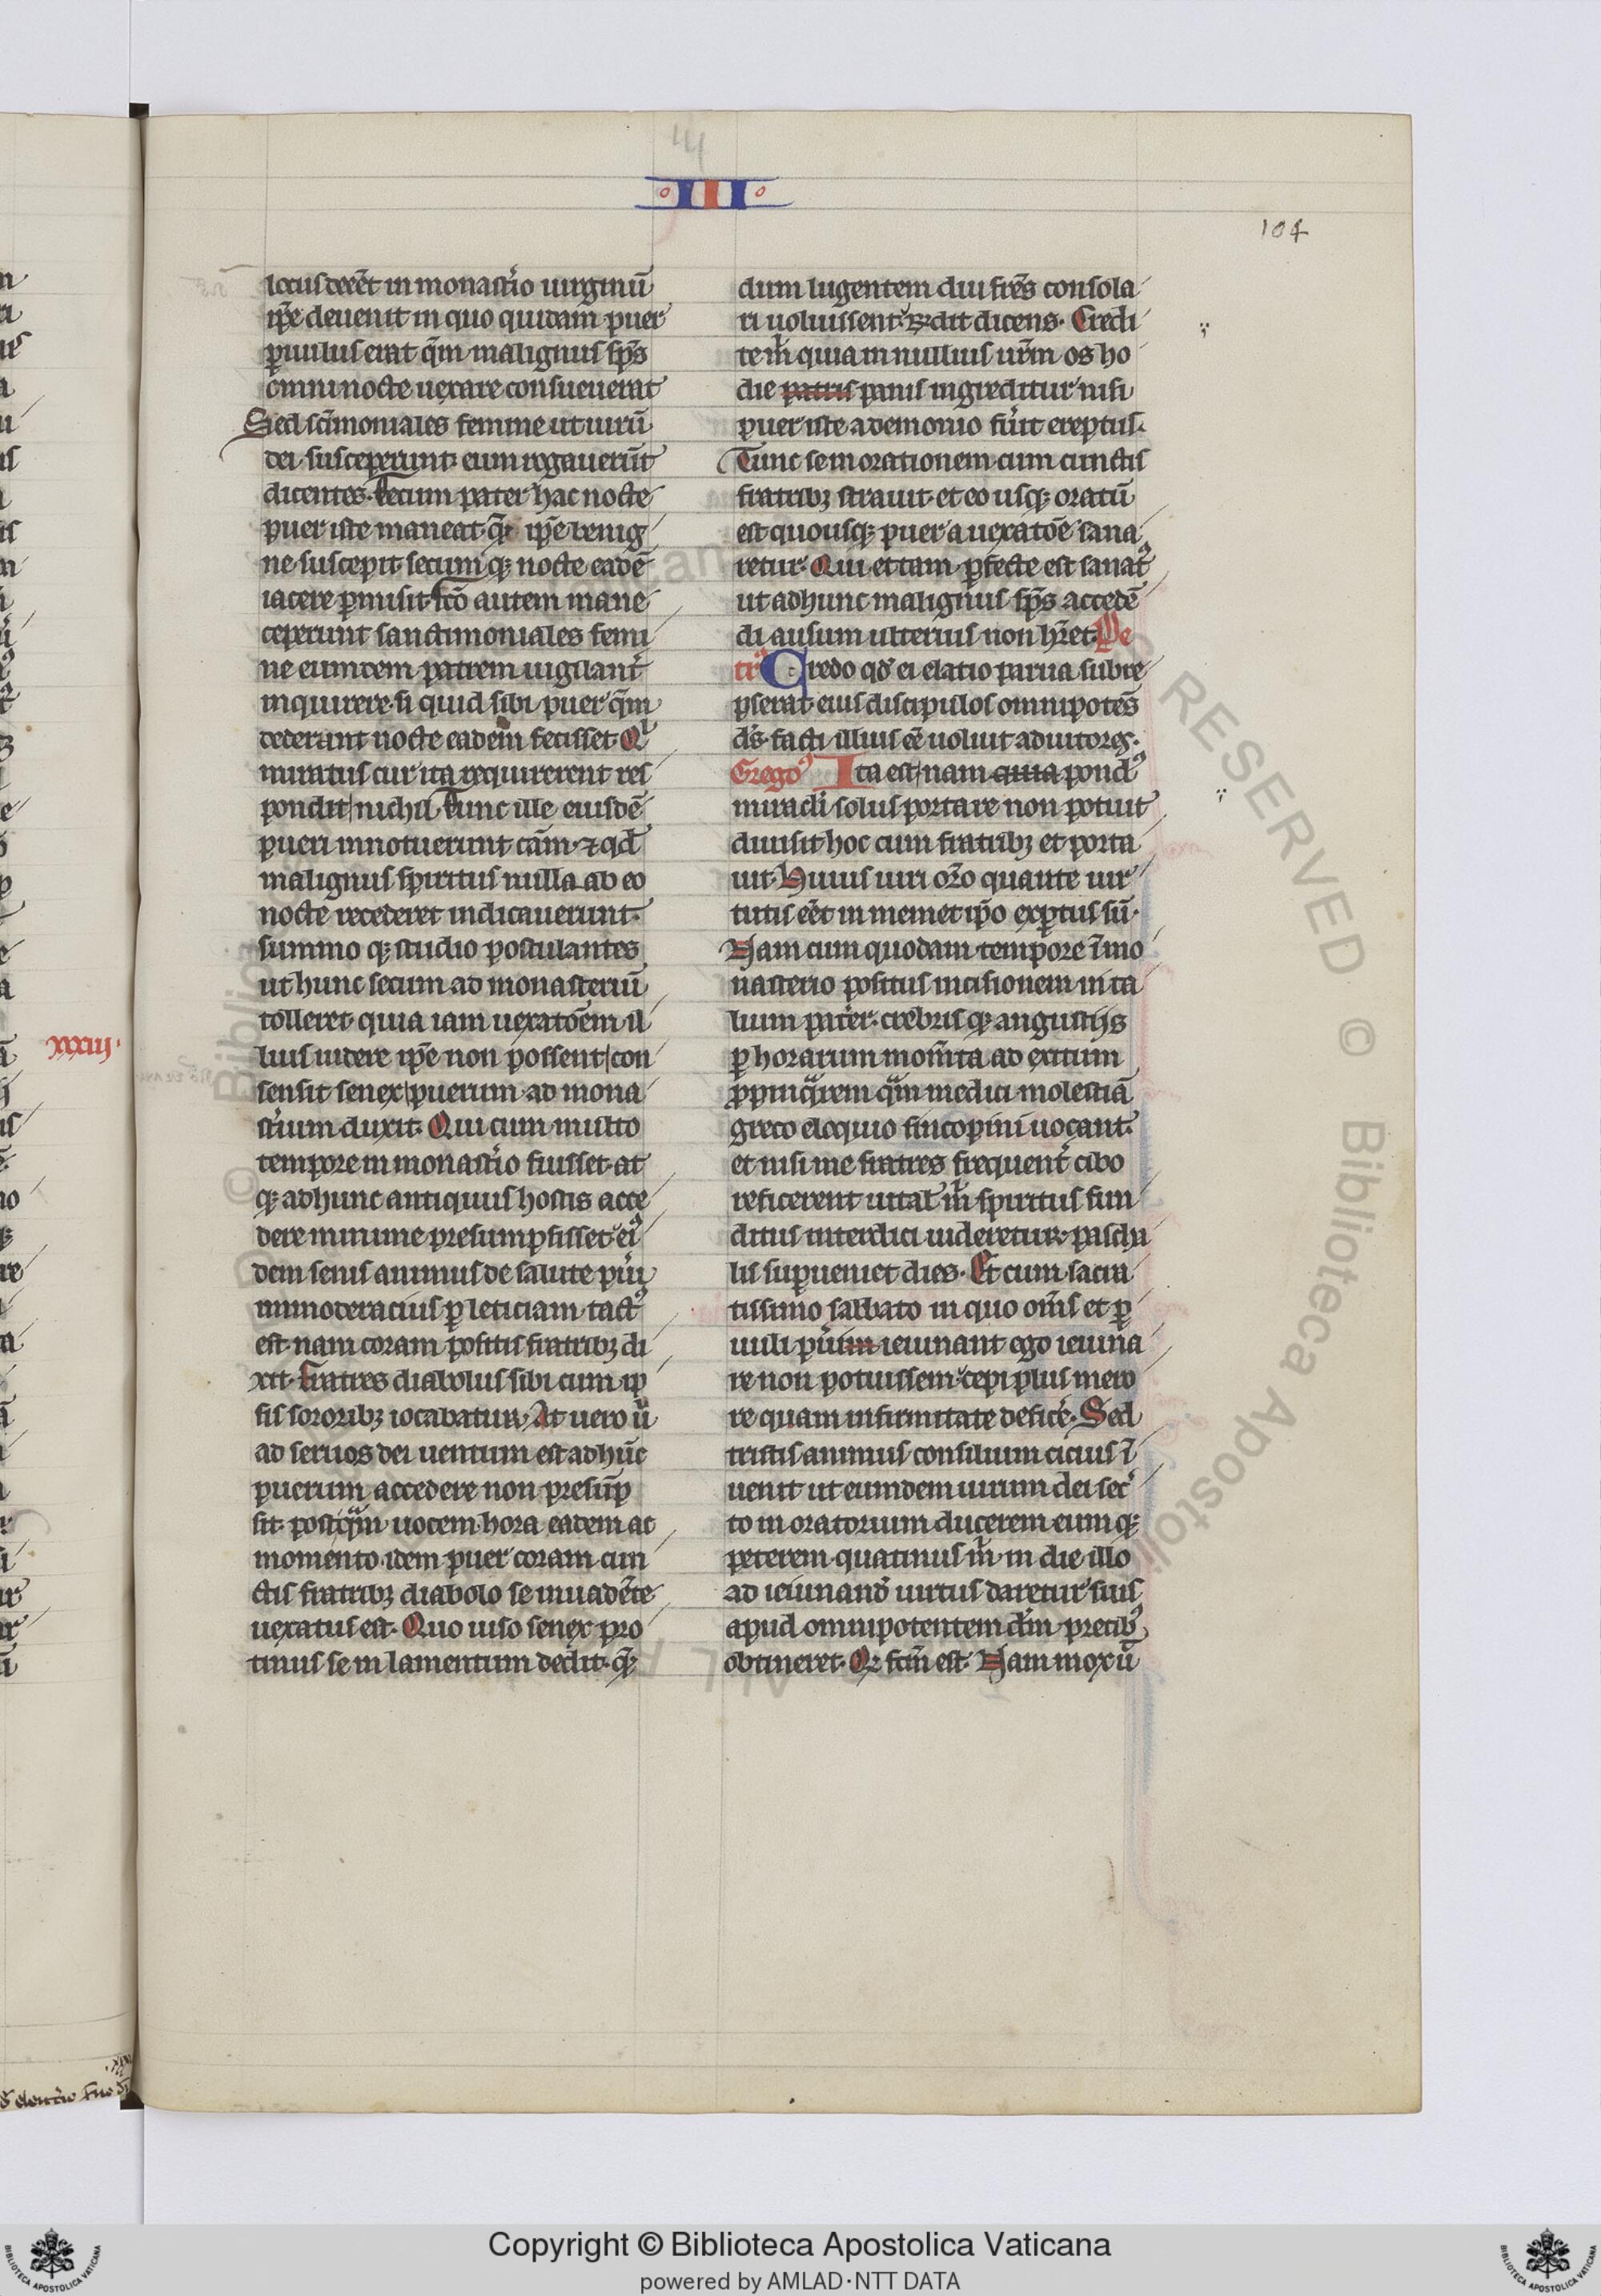 III
104
locus deeēt in monastio uirginū
ip̄e deuenit in quo quidam puer
ꝑuulus erat q̄m malignus sp̄s
omni nocte uexare consueuerat
Sed sc̄imoniales femine ut uirū
dei susceperunt· eum rogauerūt
dicentes· Tecum pater hac nocte
puer iste maneat· q̄ ip̄e benig
ne suscepit· secum qꝫ nocte eadē
iacere ꝑmisit· fc̄o autem mane
ceperunt sanctimoniales femi
ne eumdem patrem uigilant̄
inquirere· si quid sibi puer q̄m
dederant nocte eadem fecisset· Qⁱ
miratus cur ita requirerent res
pondit nichil Tunc ille eiusdē
pueri innotuerunt cām· ⁊ qd̄
malignus spiritus nulla ab eo
nocte recederet indicauerunt·
summo qꝫ studio postulantes
ut hunc secum ad monasteriū
tolleret quia iam uexatōem il
lius uidere ip̄e non possent con
sensit senex puerum ad mona
st̄ium duxit· Qui cum multo
tempore in monast̄io fuisset· at
qꝫ ad hunc antiquus hostis acce
dere minime presumpsisset eiꝰ
dem senis animus de salute pu̅i
immoderacius ꝑ leticiam tactꝰ
est· nam coram positis fratribꝫ di
xit· Fratres diabolus sibi cum ip
sis sororibꝫ iocabatur· At uero u̅
ad seruos dei uentum est ad hūc
puerum accedere non presūp
sit· postq̄m uocem hora eadem ac
momento idem puer coram cun
ctis fratribꝫ diabolo se inuadēte
uexatus est· Quo uiso senex pro
tinus se in lamentum dedit· q̄
dum lugentem diu fr̄es consola
ri uoluissent· r̄ndit dicens· Credi
te m̄ quia in nullius ur̄m os ho
die patris panis ingreditur nisi
puer iste a demonio fūit ereptus·
Tunc se in orationem cum cunctis
fratribꝫ strauit· et eo usqꝫ oratū
est quousqꝫ puer a uexatōe sana
retur· Qui et tam ꝑfecte est sanatꝰ
ut ad hunc malignus sp̄s accedē
di ausum ulterius non h̄ret Pe
trꝰ Credo qd̄ ei elatio parua subre
pserat· eius discipulos omnipotēs
ds̄· facti illius eē uoluit adiutores·
Gregoꝰ Ita est nam quia pondꝰ
miracl̄i solus portare non potuit
diuisit hoc cum fratribꝫ et porta
uit· Huius uiri orō quante uir
tutis eēt in memet ip̄o exꝑtus sū·
Nam cum quodam tempore ī mo
nasterio positus incisionem uita
lium pater· crebris qꝫ angustijs
ꝑ horarum mom̄ta ad exitum
ꝓpinq̄rem q̄m medici molestiā
greco eloquio sincopin uocant·
et nisi me fratres frequent̄ cibo
reficerent uital̄ m̄ spiritus fun
ditus interdici uideretur· pascha
lis suꝑueniet dies· Et cum sacra
tissimo sabbato in quo om̄s et ꝑ
uuli pūim ieiunant ego ieiuna
re non potuissem· cepi plus mero
re quam infirmitate deficē· Sed
tristis animus consilium cicius ī
uenit ut eumdem uirum dei sec̄
to in oratorium ducerem eum qꝫ
peterem quatinus m̄ in die illo
ad ieiunandū uirtus daretur suis
apud omnipotentem dm̄ precibꝰ
obtineret· Qꝫ fcm̄ est· Nam mox ū
xxxiij·
Copyright © Biblioteca Apostolica Vaticana
powered by AMLAD·NTT DATA